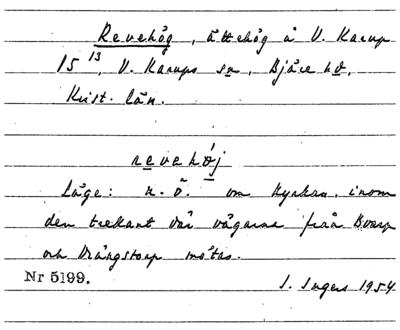 Revehög, ättehög å V. Karup
15¹³, V. Karups sn, Bjäre hd,
Krist. län.
revehøj
Läge: n. ö. om kyrkan, inom
den trekant där vägarna från
och Drängstorp mötas.
Nr 5199.
I. Ingers 1954